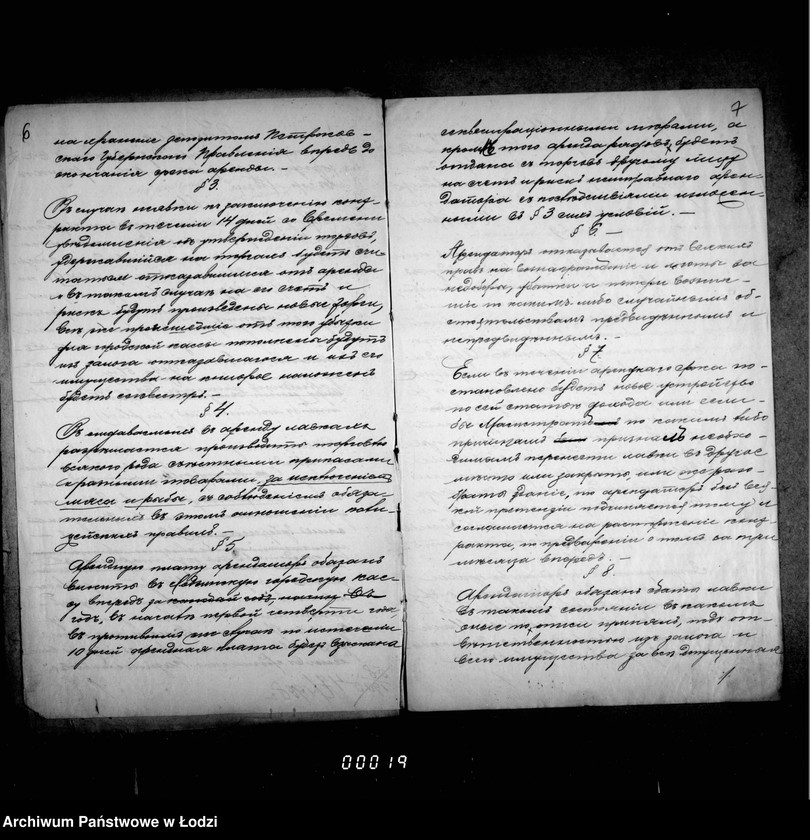 6
на хранение депозитом Петроков-
скаго Губернскаго Правления впредь до
окончания срока аренды. —
§ 3.
Въ случае неявки къ заключению конт-
ракта въ течении 14 дней со времени
уведомления объ утверждении торговъ,
удержавшийся на торгахъ будетъ счи-
таться отказавшимся отъ аренды
и въ такомъ случае на его счетъ и
рискъ будутъ произведены новые торги,
все же происшедшие отъ того убытки
для городской кассы пополнены будутъ
изъ залога отказавшагося и изъ его
имущества на которое наложенъ
будетъ секвестръ. —
§ 4.
Въ отдаваемыхъ въ аренду лавкахъ
разрешается производить торговлю
всякаго рода съестными припасами
и разными товарами, за исключениемъ
мяса и рыбы, съ соблюдениемъ обяза-
тельныхъ въ этомъ отношении поли-
цейскихъ правилъ. —
§ 5.
Арендную плату арендаторъ обязанъ
вносить въ Лодзинскую городскую кас-
су впередъ за каждый годъ,
годъ, въ начале первой четверти года
въ противномъ же случае по истечении
10 дней арендная плата будетъ взыскана
7
секвестрационными мерами, а
кроме того аренда рядовъ, будетъ
отдана съ торговъ другому лицу
на счетъ и рискъ неисправнаго арен-
датора съ последствиями изложен-
ными въ § 3 сихъ условий. —
§ 6 —
Арендаторъ отказывается отъ всякихъ
правъ на вознаграждение и льготы за
недоборы, убытки и потери возник-
шие по какимъ либо случайнымъ об-
стоятельствамъ предвиденнымъ и
непредвиденнымъ. —
§ 7.
Если въ течении аренднаго срока по-
становлено будетъ новое устройство
по сей статье дохода или если-
бы Магистратъ по какимъ либо
причинамъ призналъ необхо-
димымъ перенести лавки въ другое
место или закрыть, или же разо-
брать здание, то арендаторъ безъ вся-
кой претензии подчиняется тому и
соглашается на расторжение конт-
ракта, по предварении о томъ за три
месяца впередъ. —
§ 8.
Арендаторъ обязанъ сдать лавки
въ такомъ состоянии въ какомъ
оные по описи принялъ, подъ от-
ветственностью изъ залога и
всего имущества за все допущенныя
00019
Archiwum Państwowe w Łodzi